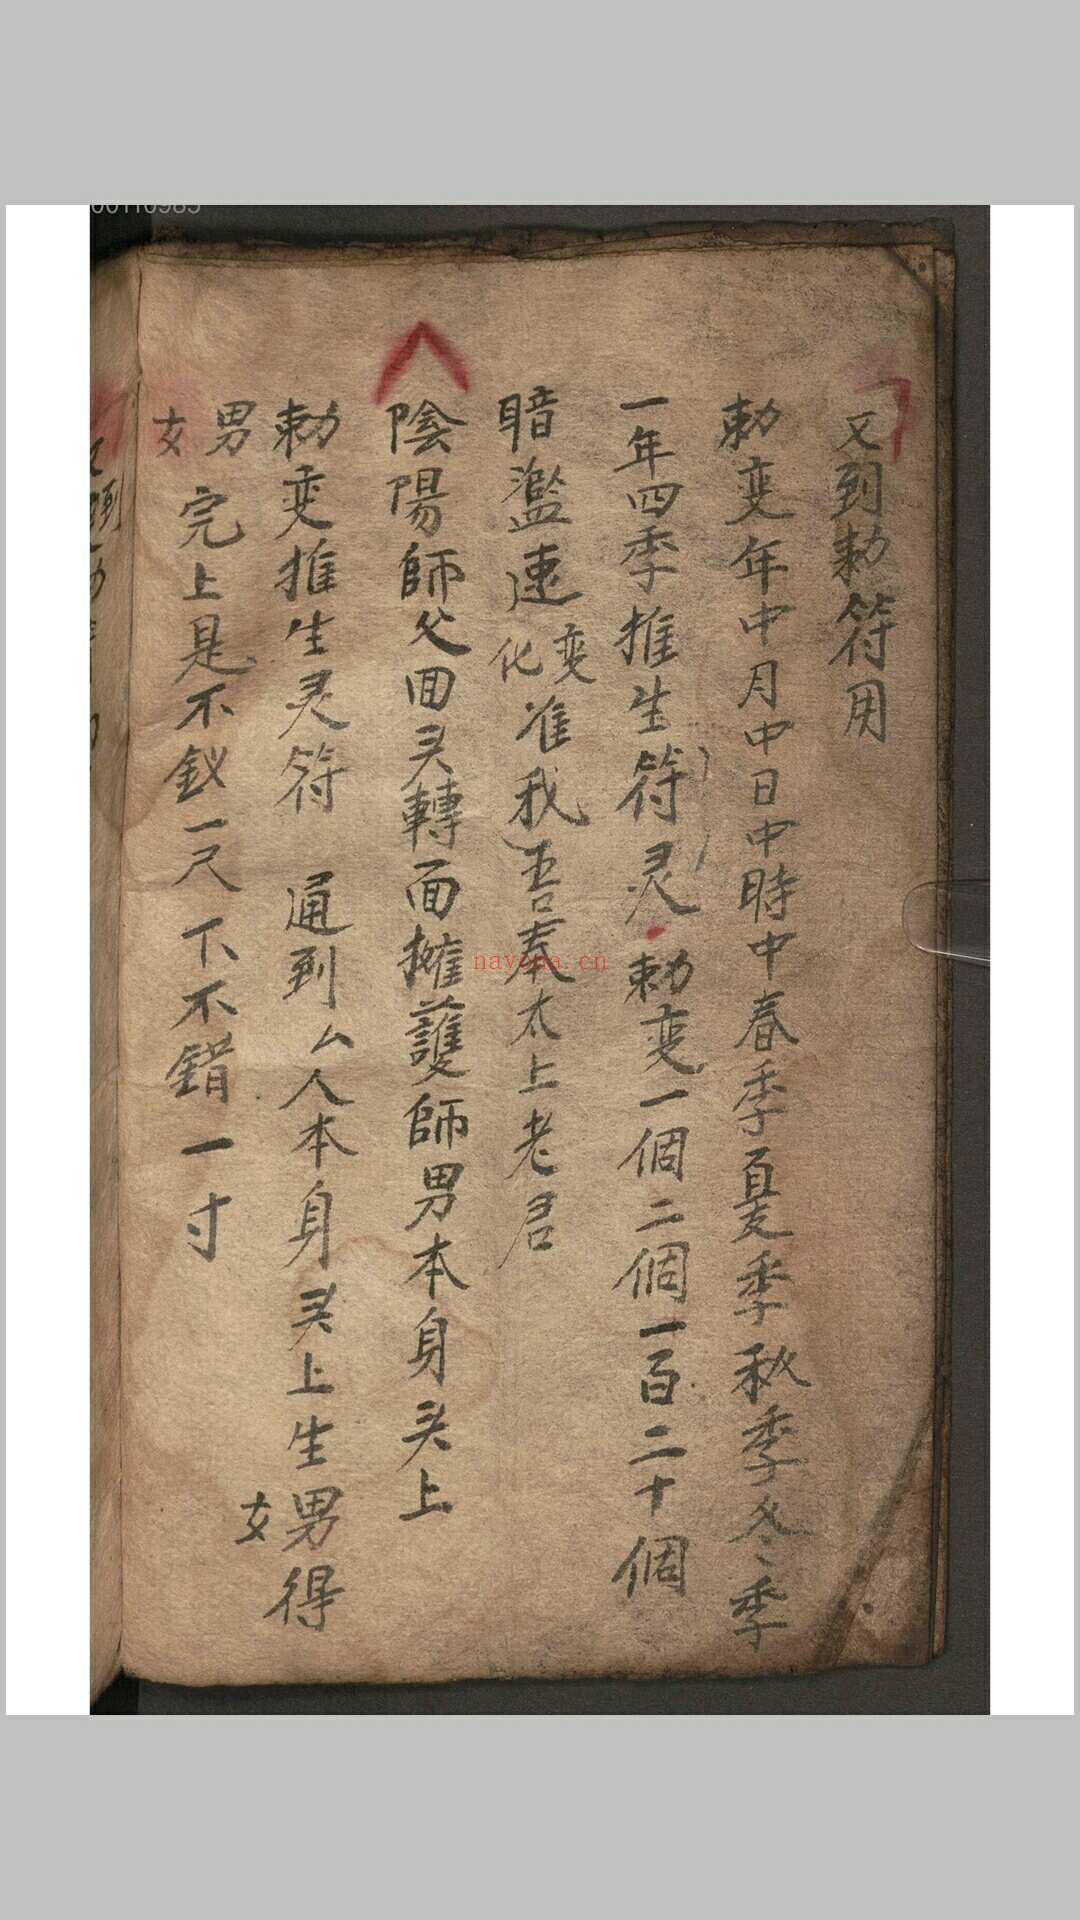 00110985
又到勅符用
勅变年中月中日中時中春季夏季秋季冬季
一年四季推生符灵勅变一個二個一百二十個
暗濫速变化准我吾奉太上老君
陰陽師父回头轉面擁護師男本身头上
勅变推生灵符 通到厶人本身头上生男女得
男女完上是不釵一尺下不錯一寸
nayona.cn